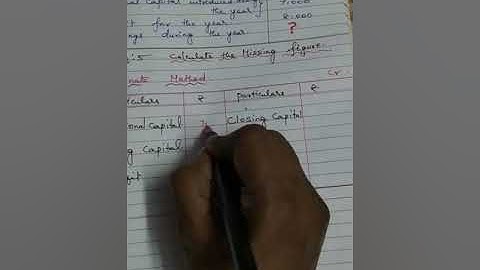 Capital introduced during
the year 7,000
t for the year 21,000
ngs during the year ?
5 Calculate the Missing figure.
nate Method
Cr.
culars ₹ particulars ₹
onal Capital 7 Closing Capital
g Capital
fit